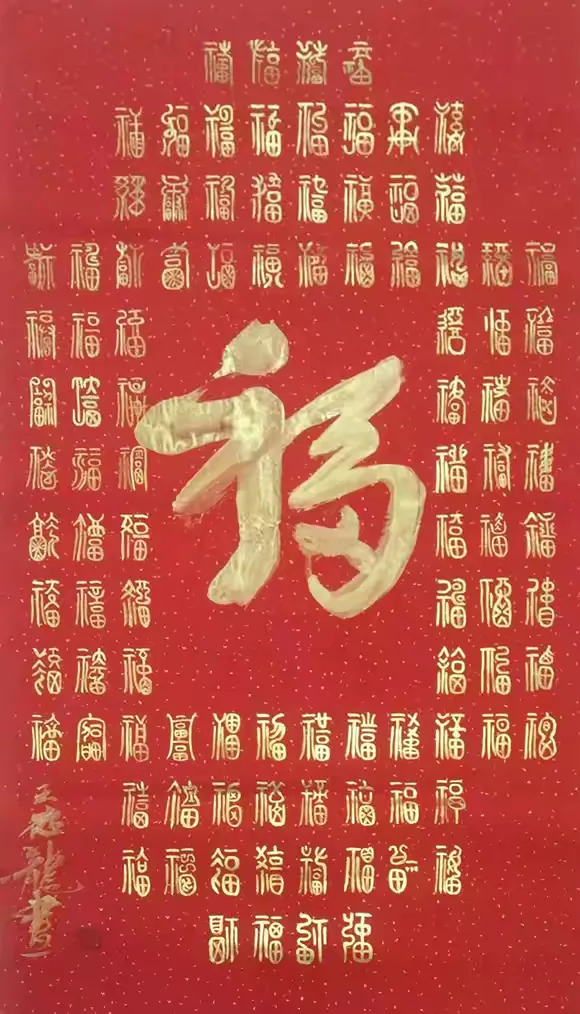 福福福福
福福福福福福福福
福福福福福福福福
福福福福福福福福福福福福
福福福 福福福
福福福 福福福
福福福 福福福
福
福福福 福福福
福福福 福福福
福福福 福福福
福福福福福福福福福福福福
福福福福福福福福
福福福福福福福福
福福福福
龍書